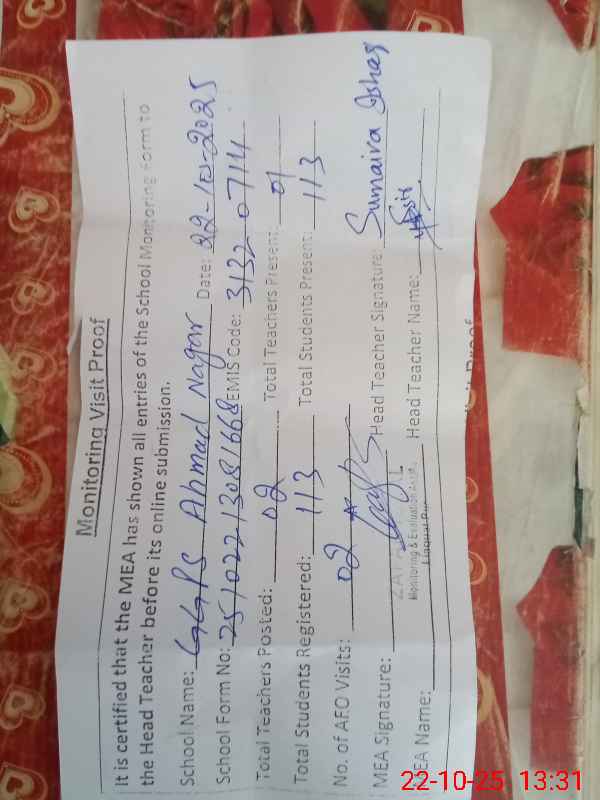 Monitoring Visit Proof
It is certified that the MEA has shown all entries of the School Monitoring Form to
the Head Teacher before its online submission.
School Name: GGPS Ahmad Nagar Date: 22-10-2025
School Form No: 25102213081668 EMIS Code: 31320714
Total Teachers Posted: 02 Total Teachers Present: 01
Total Students Registered: 113 Total Students Present: 113
No. of AEO Visits: 02
MEA Signature: Head Teacher Signature: Sumaira Ishaq
Monitoring & Evaluation
MEA Name: Head Teacher Name:
22-10-25 13:31